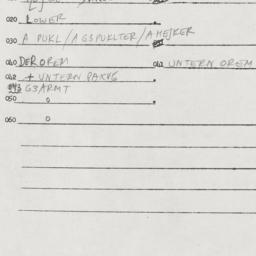 020 LOWER
030 A PUKL/A G3PUKLTER/A HEJKER
040 DER OREM 041 UNTERN OREM
042 + UNTERN PAKVS
043 G3ARMT
050 0
060 0